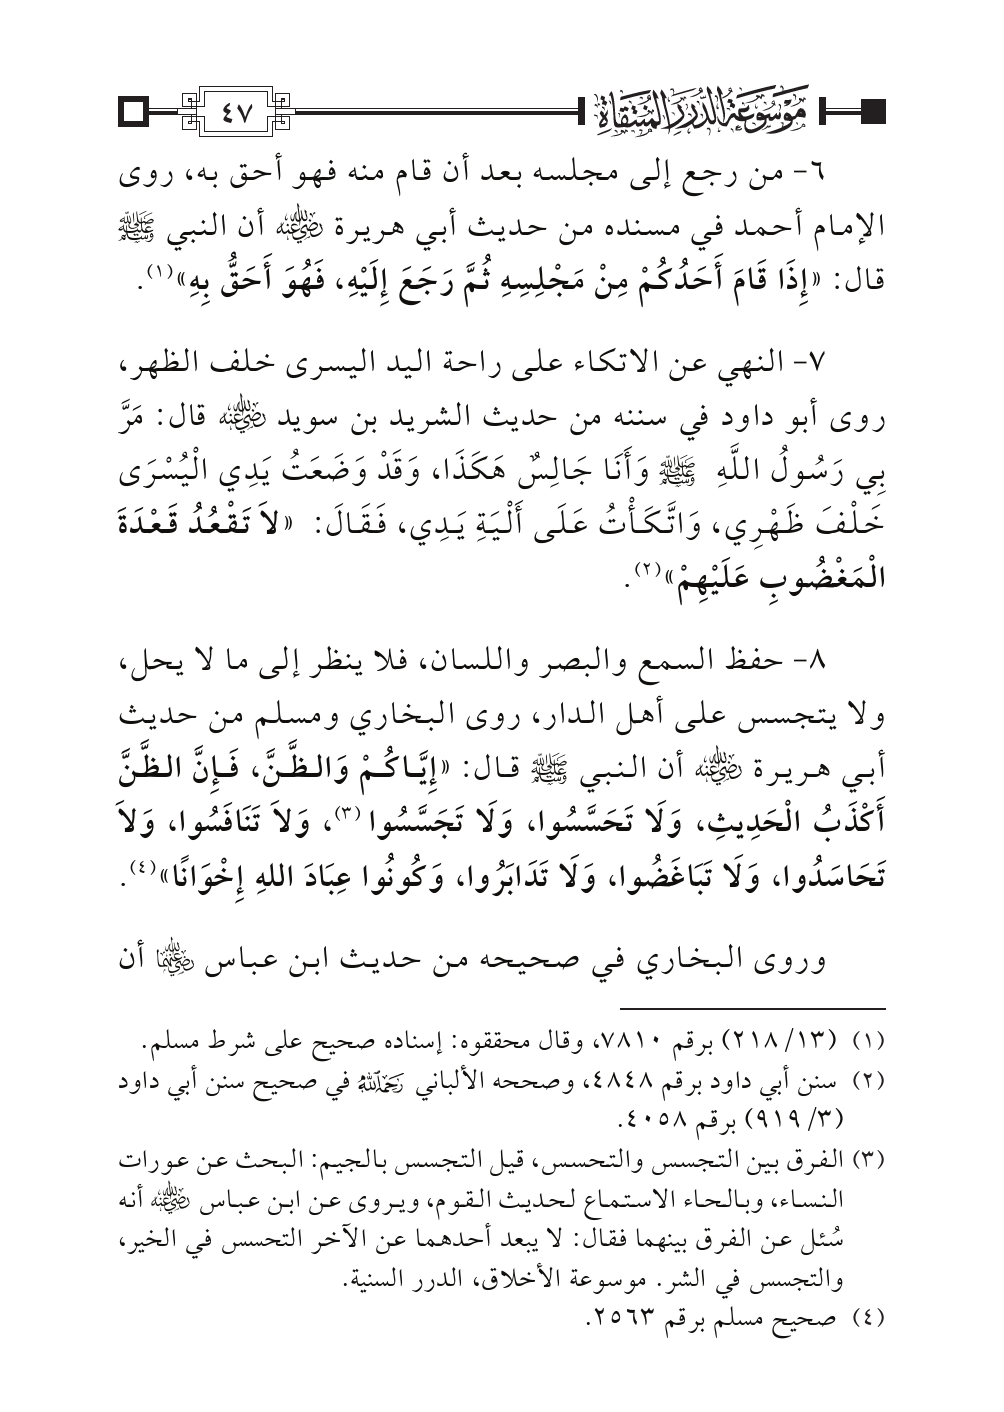 موسوعة الدرر المنتقاة
٤٧
٦- من رجع إلى مجلسه بعد أن قام منه فهو أحق به، روى
الإمام أحمد في مسنده من حديث أبي هريرة رضي الله عنه أن النبي ﷺ
قال: «إِذَا قَامَ أَحَدُكُمْ مِنْ مَجْلِسِهِ ثُمَّ رَجَعَ إِلَيْهِ، فَهُوَ أَحَقُّ بِهِ»(١).
٧- النهي عن الاتكاء على راحة اليد اليسرى خلف الظهر،
روى أبو داود في سننه من حديث الشريد بن سويد رضي الله عنه قال: مَرَّ
بِي رَسُولُ اللَّهِ ﷺ وَأَنَا جَالِسٌ هَكَذَا، وَقَدْ وَضَعَتُ يَدِي الْيُسْرَى
خَلْفَ ظَهْرِي، وَاتَّكَأْتُ عَلَى أَلْيَةِ يَدِي، فَقَالَ: «لاَ تَقْعُدُ قَعْدَةَ
الْمَغْضُوبِ عَلَيْهِمْ»(٢).
٨- حفظ السمع والبصر واللسان، فلا ينظر إلى ما لا يحل،
ولا يتجسس على أهل الدار، روى البخاري ومسلم من حديث
أبي هريرة رضي الله عنه أن النبي ﷺ قال: «إِيَّاكُمْ وَالظَّنَّ، فَإِنَّ الظَّنَّ
أَكْذَبُ الْحَدِيثِ، وَلَا تَحَسَّسُوا، وَلَا تَجَسَّسُوا(٣)، وَلاَ تَنَافَسُوا، وَلاَ
تَحَاسَدُوا، وَلَا تَبَاغَضُوا، وَلَا تَدَابَرُوا، وَكُونُوا عِبَادَ اللهِ إِخْوَانًا»(٤).
وروى البخاري في صحيحه من حديث ابن عباس رضي الله عنهما أن
(١) (١٣/ ٢١٨) برقم ٧٨١٠، وقال محققوه: إسناده صحيح على شرط مسلم.
(٢) سنن أبي داود برقم ٤٨٤٨، وصححه الألباني رحمه الله في صحيح سنن أبي داود
(٣/ ٩١٩) برقم ٤٠٥٨.
(٣) الفرق بين التجسس والتحسس، قيل التجسس بالجيم: البحث عن عورات
النساء، وبالحاء الاستماع لحديث القوم، ويروى عن ابن عباس رضي الله عنه أنه
سُئل عن الفرق بينهما فقال: لا يبعد أحدهما عن الآخر التحسس في الخير،
والتجسس في الشر. موسوعة الأخلاق، الدرر السنية.
(٤) صحيح مسلم برقم ٢٥٦٣.